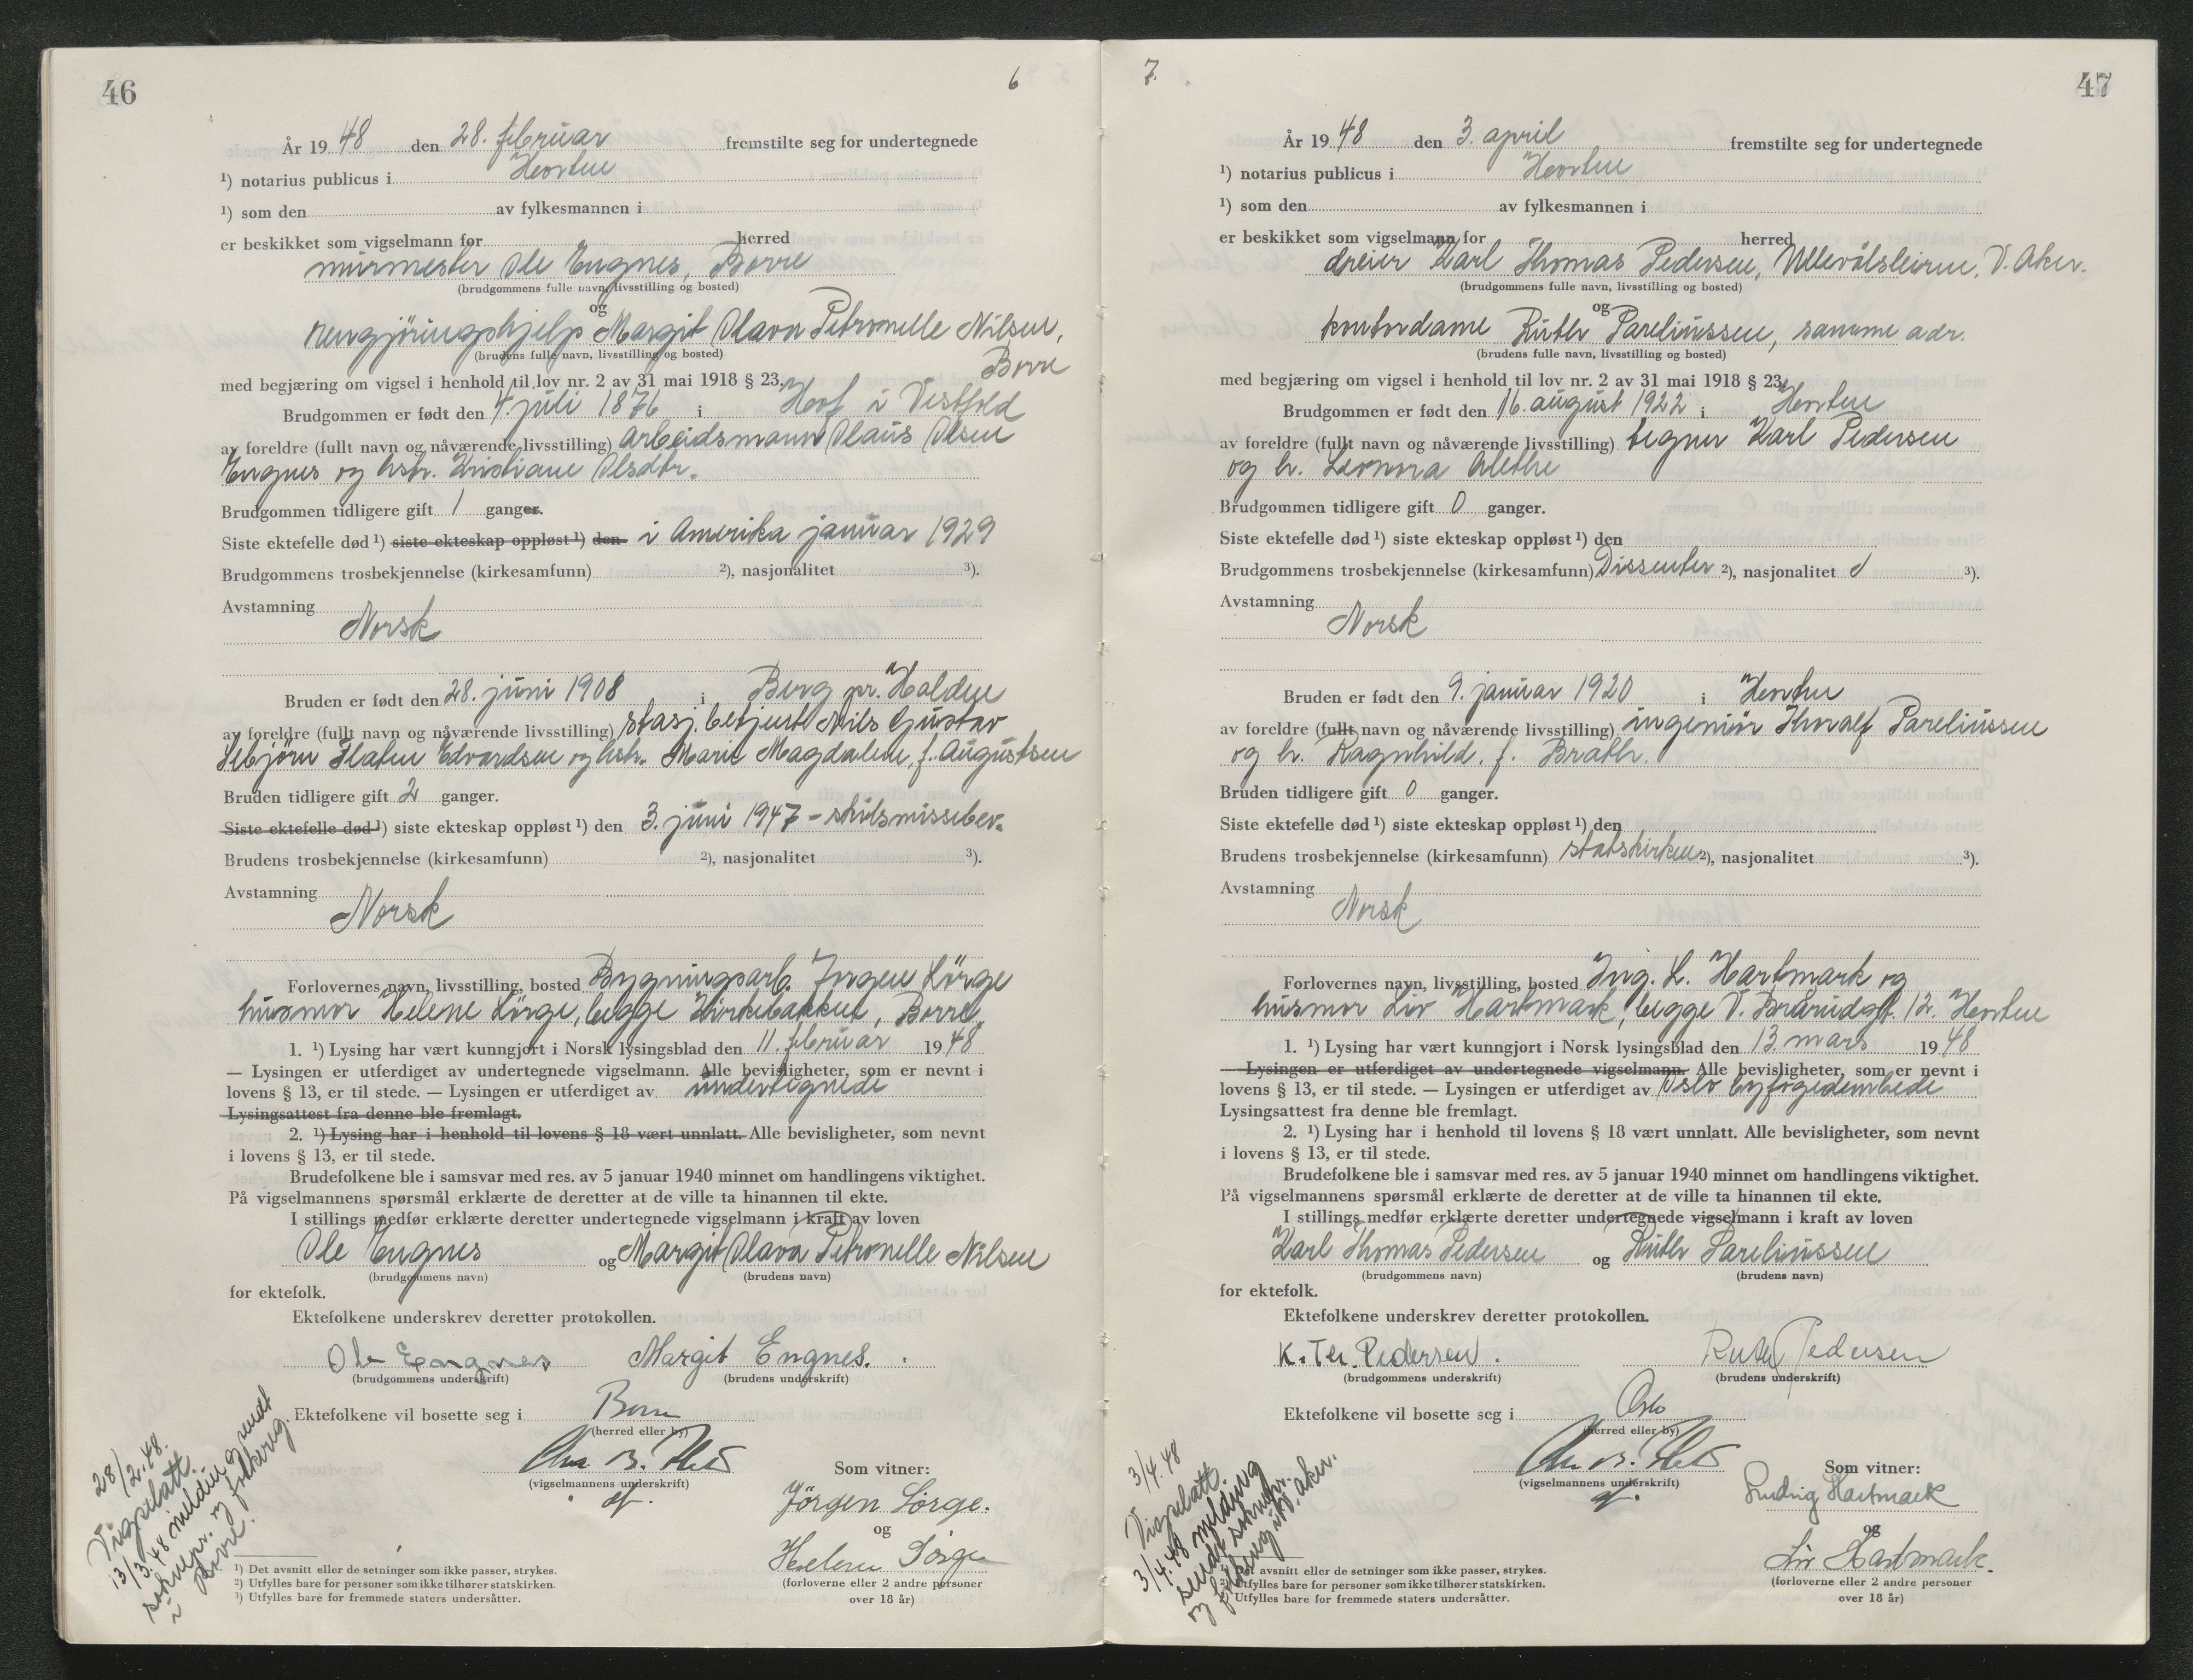 46
6
År 1948 den 28. februar fremstilte seg for undertegnede
¹) notarius publicus i Horten
¹) som den av fylkesmannen i
er beskikket som vigselmann for herred
murmester Ole Engnes, Borre
(brudgommens fulle navn, livsstilling og bosted)
og
rengjöringshjelp Margit Olava Petronelle Nilsen,
(brudens fulle navn, livsstilling og bosted)
Borre
med begjæring om vigsel i henhold til lov nr. 2 av 31 mai 1918 § 23.
Brudgommen er født den 4. juli 1876 i Hof i Vestfold
av foreldre (fullt navn og nåværende livsstilling) arbeidsmann Olaus Olsen
Engnes og hstr. Kristiane Olsdtr.
Brudgommen tidligere gift 1 ganger.
Siste ektefelle død ¹) siste ekteskap oppløst ¹) den i Amerika januar 1929
Brudgommens trosbekjennelse (kirkesamfunn) ²), nasjonalitet ³).
Avstamning
Norsk
Bruden er født den 28. juni 1908 i Berg pr. Halden
av foreldre (fullt navn og nåværende livsstilling) stasj.betjent Nils Gustav
Flaten Edvardsen og hstr. Marie Magdalene, f. Augustsen
Bruden tidligere gift 2 ganger.
Siste ektefelle død ¹) siste ekteskap oppløst ¹) den 3. juni 1947 - skilsmissebev.
Brudens trosbekjennelse (kirkesamfunn) ²), nasjonalitet ³).
Avstamning
Norsk
Forlovernes navn, livsstilling, bosted Bygningsarb. Jørgen Lörge
husmor Helene Lörge, begge Kirkebakken, Borre.
1. ¹) Lysing har vært kunngjort i Norsk lysingsblad den 11. februar 1948
— Lysingen er utferdiget av undertegnede vigselmann. Alle bevisligheter, som er nevnt i
lovens § 13, er til stede. — Lysingen er utferdiget av undertegnede
Lysingsattest fra denne ble fremlagt.
2. ¹) Lysing har i henhold til lovens § 18 vært unnlatt. Alle bevisligheter, som nevnt
i lovens § 13, er til stede.
Brudefolkene ble i samsvar med res. av 5 januar 1940 minnet om handlingens viktighet.
På vigselmannens spørsmål erklærte de deretter at de ville ta hinannen til ekte.
I stillings medfør erklærte deretter undertegnede vigselmann i kraft av loven
Ole Engnes og Margit Olava Petronelle Nilsen
(brudgommens navn) (brudens navn)
for ektefolk.
Ektefolkene underskrev deretter protokollen.
Ole Engnes Margit Engnes.
(brudgommens underskrift) (brudens underskrift)
Ektefolkene vil bosette seg i Borre
(herred eller by)
(vigselmannens underskrift)
Som vitner:
Jörgen Lörge.
og
Helene Lörge
(forloverne eller 2 andre personer
over 18 år)
28/2.48.
Vigselatt.
13/3.48 melding sendt
soknepr. og folkereg.
i Borre.
¹) Det avsnitt eller de setninger som ikke passer, strykes.
²) Utfylles bare for personer som ikke tilhører statskirken.
³) Utfylles bare for fremmede staters undersåtter.
7.
47
År 1948 den 3. april fremstilte seg for undertegnede
¹) notarius publicus i Horten
¹) som den av fylkesmannen i
er beskikket som vigselmann for herred
dreier Karl Thomas Pedersen, Ullevålsleiren, V. Aker.
(brudgommens fulle navn, livsstilling og bosted)
og
kontordame Ruth Pareliussen, samme adr.
(brudens fulle navn, livsstilling og bosted)
med begjæring om vigsel i henhold til lov nr. 2 av 31 mai 1918 § 23.
Brudgommen er født den 16. august 1922 i Horten
av foreldre (fullt navn og nåværende livsstilling) tegner Karl Pedersen
og h. Leonora Alethe
Brudgommen tidligere gift 0 ganger.
Siste ektefelle død ¹) siste ekteskap oppløst ¹) den
Brudgommens trosbekjennelse (kirkesamfunn) Dissenter ²), nasjonalitet ³).
Avstamning
Norsk
Bruden er født den 9. januar 1920 i Horten
av foreldre (fullt navn og nåværende livsstilling) ingeniör Thoralf Pareliussen
og h. Ragnhild, f. Brath.
Bruden tidligere gift 0 ganger.
Siste ektefelle død ¹) siste ekteskap oppløst ¹) den
Brudens trosbekjennelse (kirkesamfunn) statskirken ²), nasjonalitet ³).
Avstamning
Norsk
Forlovernes navn, livsstilling, bosted Ing. L. Hartmark og
husmor Liv Hartmark, begge V. Braarudgt. 12. Horten
1. ¹) Lysing har vært kunngjort i Norsk lysingsblad den 13. mars 1948
— Lysingen er utferdiget av undertegnede vigselmann. Alle bevisligheter, som er nevnt i
lovens § 13, er til stede. — Lysingen er utferdiget av Oslo byfogedembede
Lysingsattest fra denne ble fremlagt.
2. ¹) Lysing har i henhold til lovens § 18 vært unnlatt. Alle bevisligheter, som nevnt
i lovens § 13, er til stede.
Brudefolkene ble i samsvar med res. av 5 januar 1940 minnet om handlingens viktighet.
På vigselmannens spørsmål erklærte de deretter at de ville ta hinannen til ekte.
I stillings medfør erklærte deretter undertegnede vigselmann i kraft av loven
Karl Thomas Pedersen og Ruth Pareliussen
(brudgommens navn) (brudens navn)
for ektefolk.
Ektefolkene underskrev deretter protokollen.
K. Th. Pedersen. Ruth Pedersen
(brudgommens underskrift) (brudens underskrift)
Ektefolkene vil bosette seg i Oslo
(herred eller by)
(vigselmannens underskrift)
Som vitner:
Ludvig Hartmark
og
Liv Hartmark.
(forloverne eller 2 andre personer
over 18 år)
3/4.48
Vigselatt.
3/4.48 melding
sendt soknepr.
og folkereg. i V. Aker.
¹) Det avsnitt eller de setninger som ikke passer, strykes.
²) Utfylles bare for personer som ikke tilhører statskirken.
³) Utfylles bare for fremmede staters undersåtter.